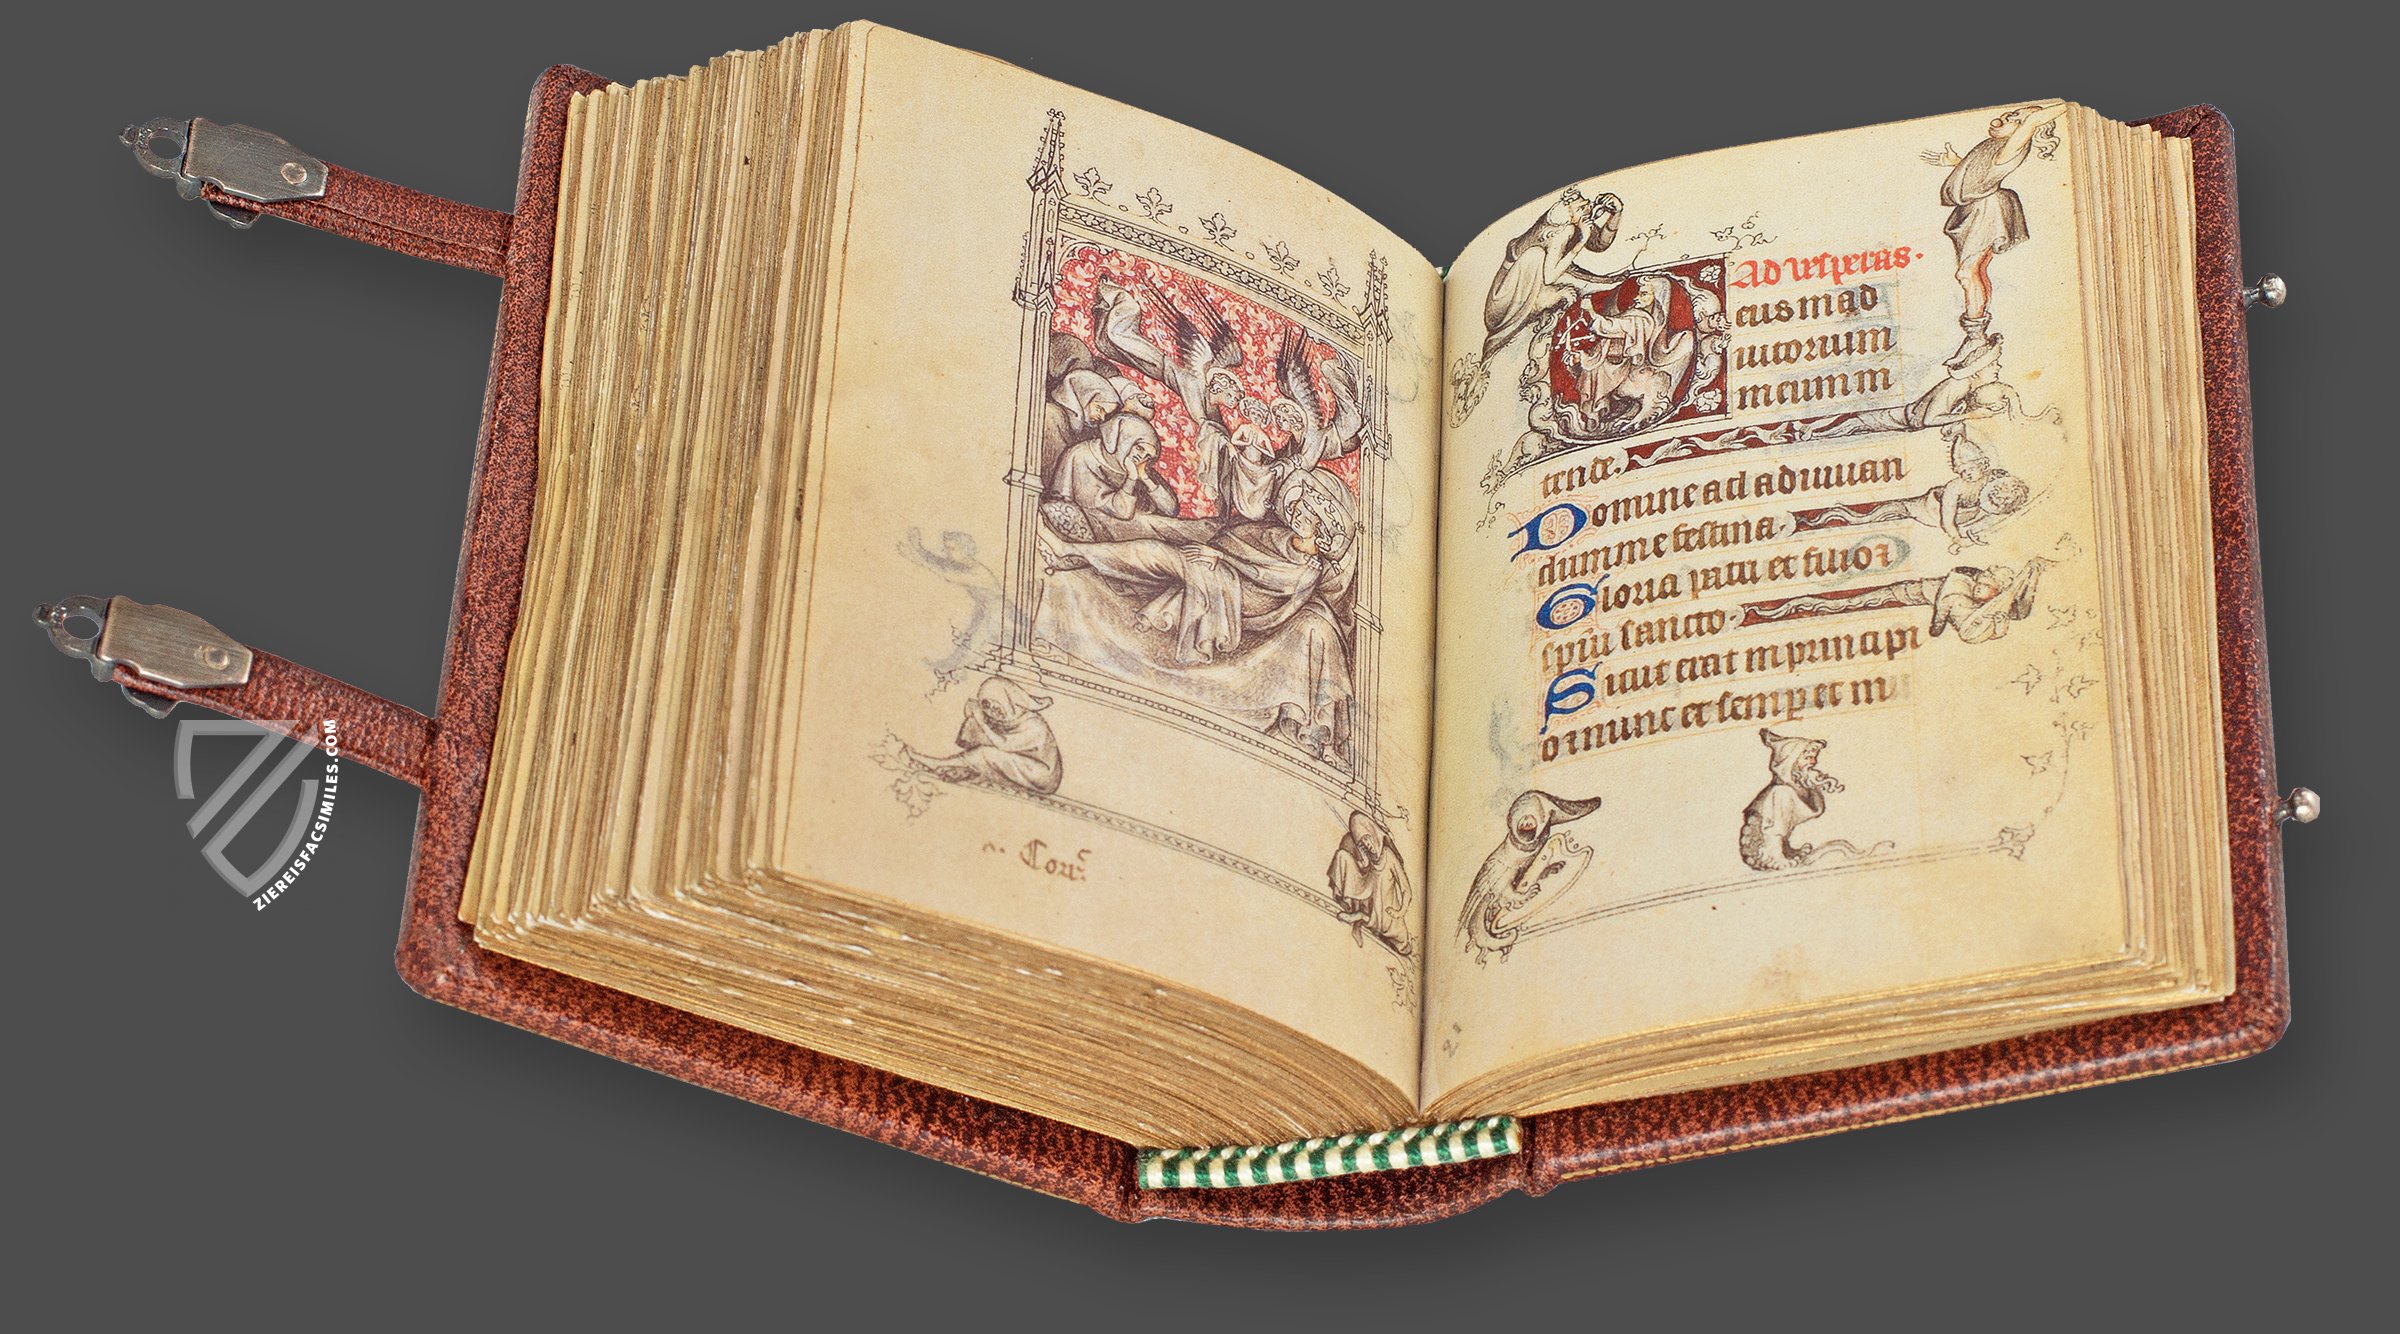 Corr̄
Ad vesperas.
eus in ad
iutorium
meum in
tende.
Domine ad adiuuan
dum me festina.
Gloria patri et filio
spiu sancto.
Sicut erat in principi
o et nunc et semp et in
21
ZIEREISFACSIMILES.COM